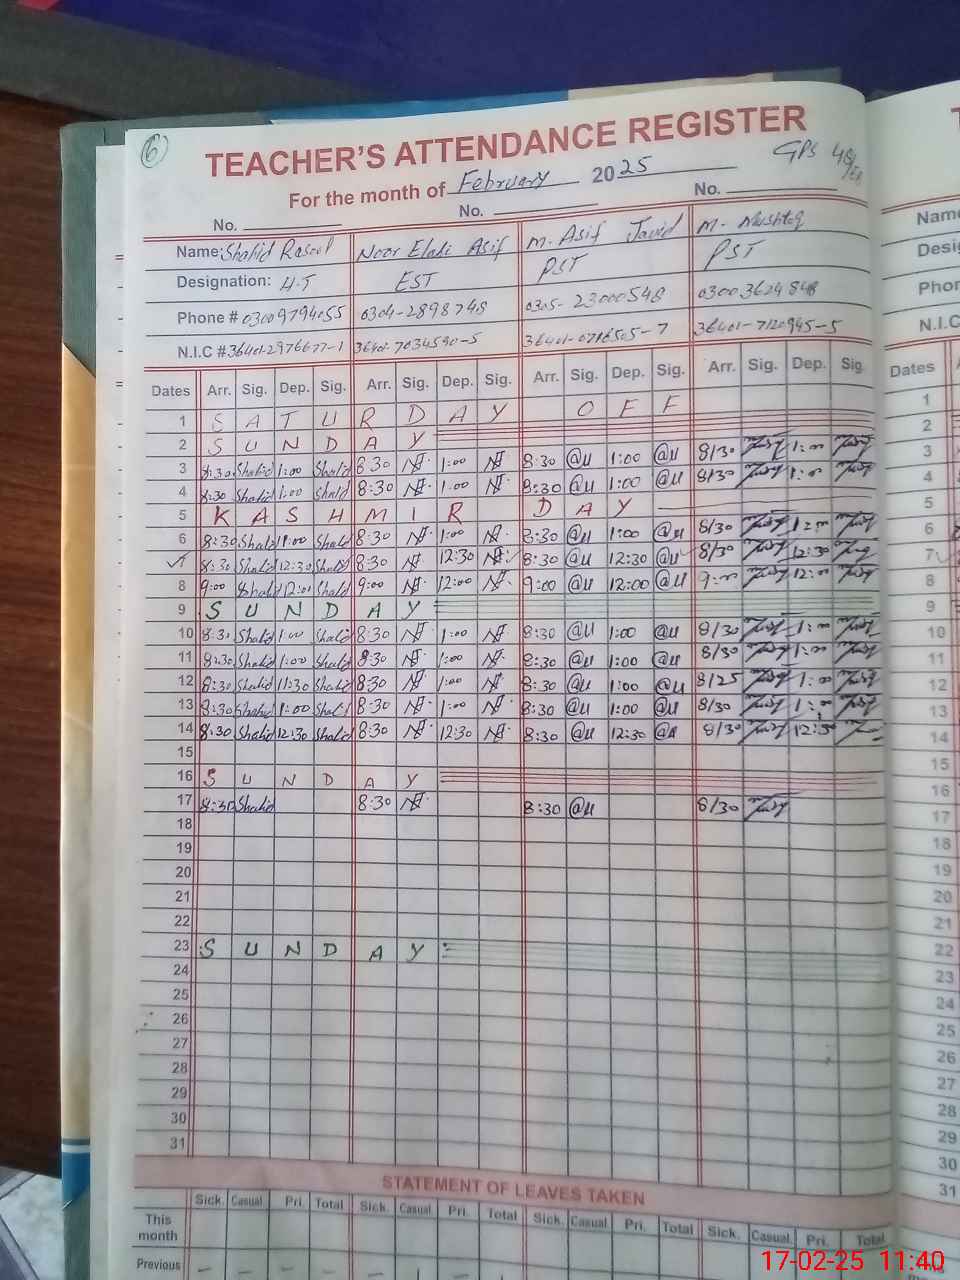 6
TEACHER'S ATTENDANCE REGISTER
GPS 48/
For the month of February 2025
No. No. No.
Name: Shahid Rasool Noor Elahi Asif M. Asif Javid M. Mushtaq
Designation: H.T EST PST PST
Phone # 03009794055 0304-2898748 0305-23000548 03003624848
N.I.C # 36401-2976677-1 36401-7034590-5 36401-0716505-7 36401-7120945-5
Dates Arr. Sig. Dep. Sig. Arr. Sig. Dep. Sig. Arr. Sig. Dep. Sig. Arr. Sig. Dep. Sig.
1 SATURDAY OFF
2 SUNDAY
3 8:30 Shahid 1:00 Shahid 8:30 1:00 8:30 1:00 8/30 1:00
4 8:30 Shahid 1:00 Shahid 8:30 1:00 8:30 1:00 8/30 1:00
5 KASHMIR DAY
6 8:30 Shahid 1:00 Shahid 8:30 1:00 8:30 1:00 8/30 1:00
7 8:30 Shahid 12:30 Shahid 8:30 12:30 8:30 12:30 8/30 12:30
8 9:00 Shahid 12:00 Shahid 9:00 12:00 9:00 12:00 9:00 12:00
9 SUNDAY
10 8:30 Shahid 1:00 Shahid 8:30 1:00 8:30 1:00 8/30 1:00
11 8:30 Shahid 1:00 Shahid 8:30 1:00 8:30 1:00 8/30 1:00
12 8:30 Shahid 11:30 Shahid 8:30 1:00 8:30 1:00 8/25 1:00
13 8:30 Shahid 1:00 Shahid 8:30 1:00 8:30 1:00 8/30 1:00
14 8:30 Shahid 12:30 Shahid 8:30 12:30 8:30 12:30 8/30 12:30
15
16 SUNDAY
17 8:30 Shahid 8:30 8:30 8/30
18
19
20
21
22
23 SUNDAY
24
25
26
27
28
29
30
31
STATEMENT OF LEAVES TAKEN
Sick. Casual. Pri. Total Sick. Casual. Pri. Total Sick. Casual. Pri. Total Sick. Casual. Pri. Total
This month
Previous
Name
Desig
Phon
N.I.C
Dates
1
2
3
4
5
6
7
8
9
10
11
12
13
14
15
16
17
18
19
20
21
22
23
24
25
26
27
28
29
30
31
17-02-25 11:40